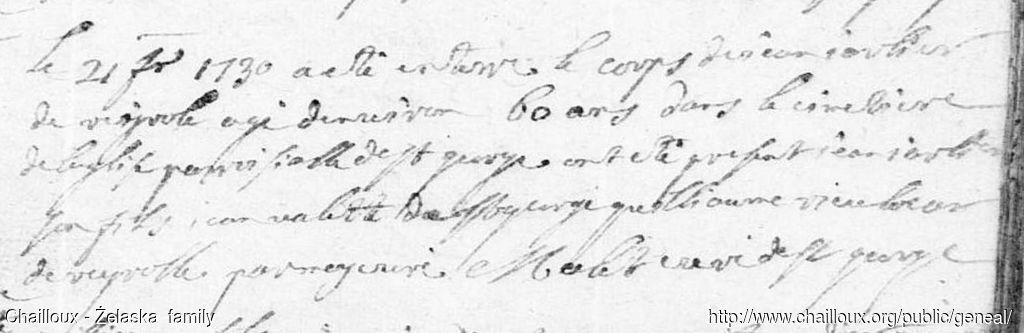 le 21 fr 1730 a eté enterré le corps de jean
de age denviron 60 ans dans le cimetiere
de leglise parroissialle de st george ont eté present jean
son fils jean valette de st george guilliaume
de par moy curé curé de st george
Chailloux - Żelaska family
http://www.chailloux.org/public/geneal/